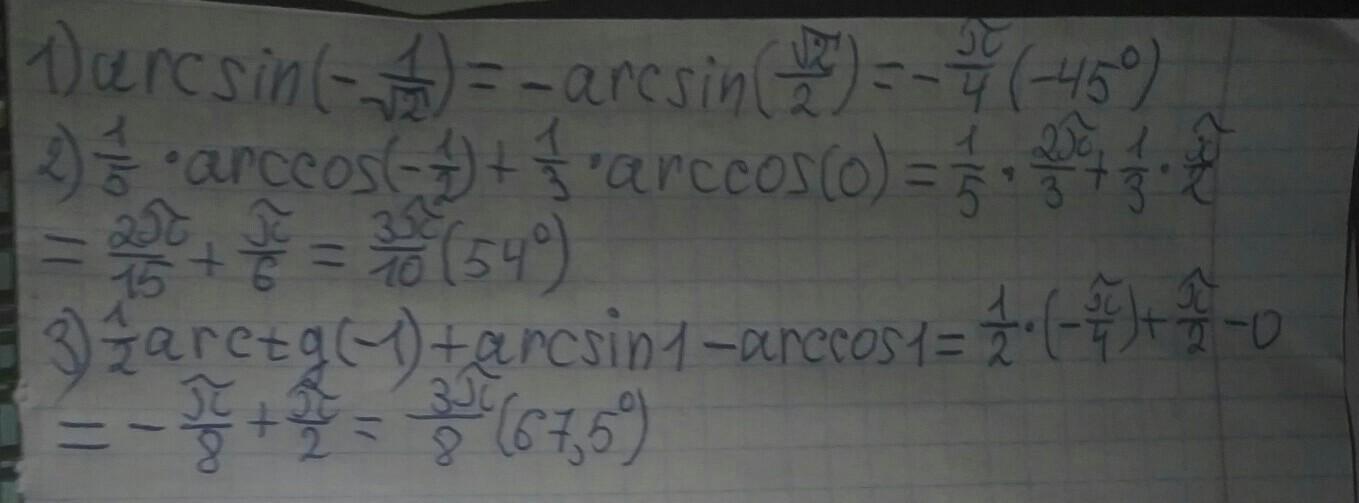 1) arcsin(-1/√2) = -arcsin(√2/2) = -π/4 (-45°)
2) 1/5 · arccos(-1/2) + 1/3 · arccos(0) = 1/5 · 2π/3 + 1/3 · π/2
= 2π/15 + π/6 = 3π/10 (54°)
3) 1/2 arctg(-1) + arcsin1 - arccos1 = 1/2 · (-π/4) + π/2 - 0
= -π/8 + π/2 = 3π/8 (67,5°)